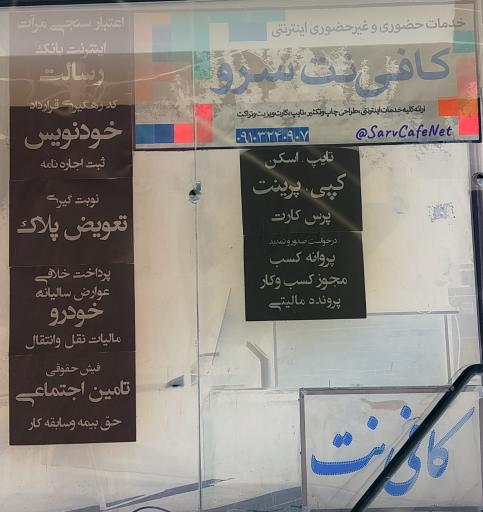 خدمات حضوری و غیرحضوری اینترنتی
کافی نت سرو
ارائه کلیه خدمات اینترنتی، طراحی چاپ و تکثیر، تایپ، کارت ویزیت و تراکت
@SarvCafeNet
۰۹۱۰۳۲۴۰۹۰۷
تایپ . اسکن
کپی . پرینت
پرس کارت
درخواست صدور و تمدید
پروانه کسب
مجوز کسب و کار
پرونده مالیاتی
اعتبار سنجی مرآت
اینترنت بانک
رسالت
کد رهگیری قرارداد
خودنویس
ثبت اجاره نامه
نوبت گیری
تعویض پلاک
پرداخت خلافی
عوارض سالیانه
خودرو
مالیات نقل و انتقال
فیش حقوقی
تامین اجتماعی
حق بیمه و سابقه کار
کافی نت